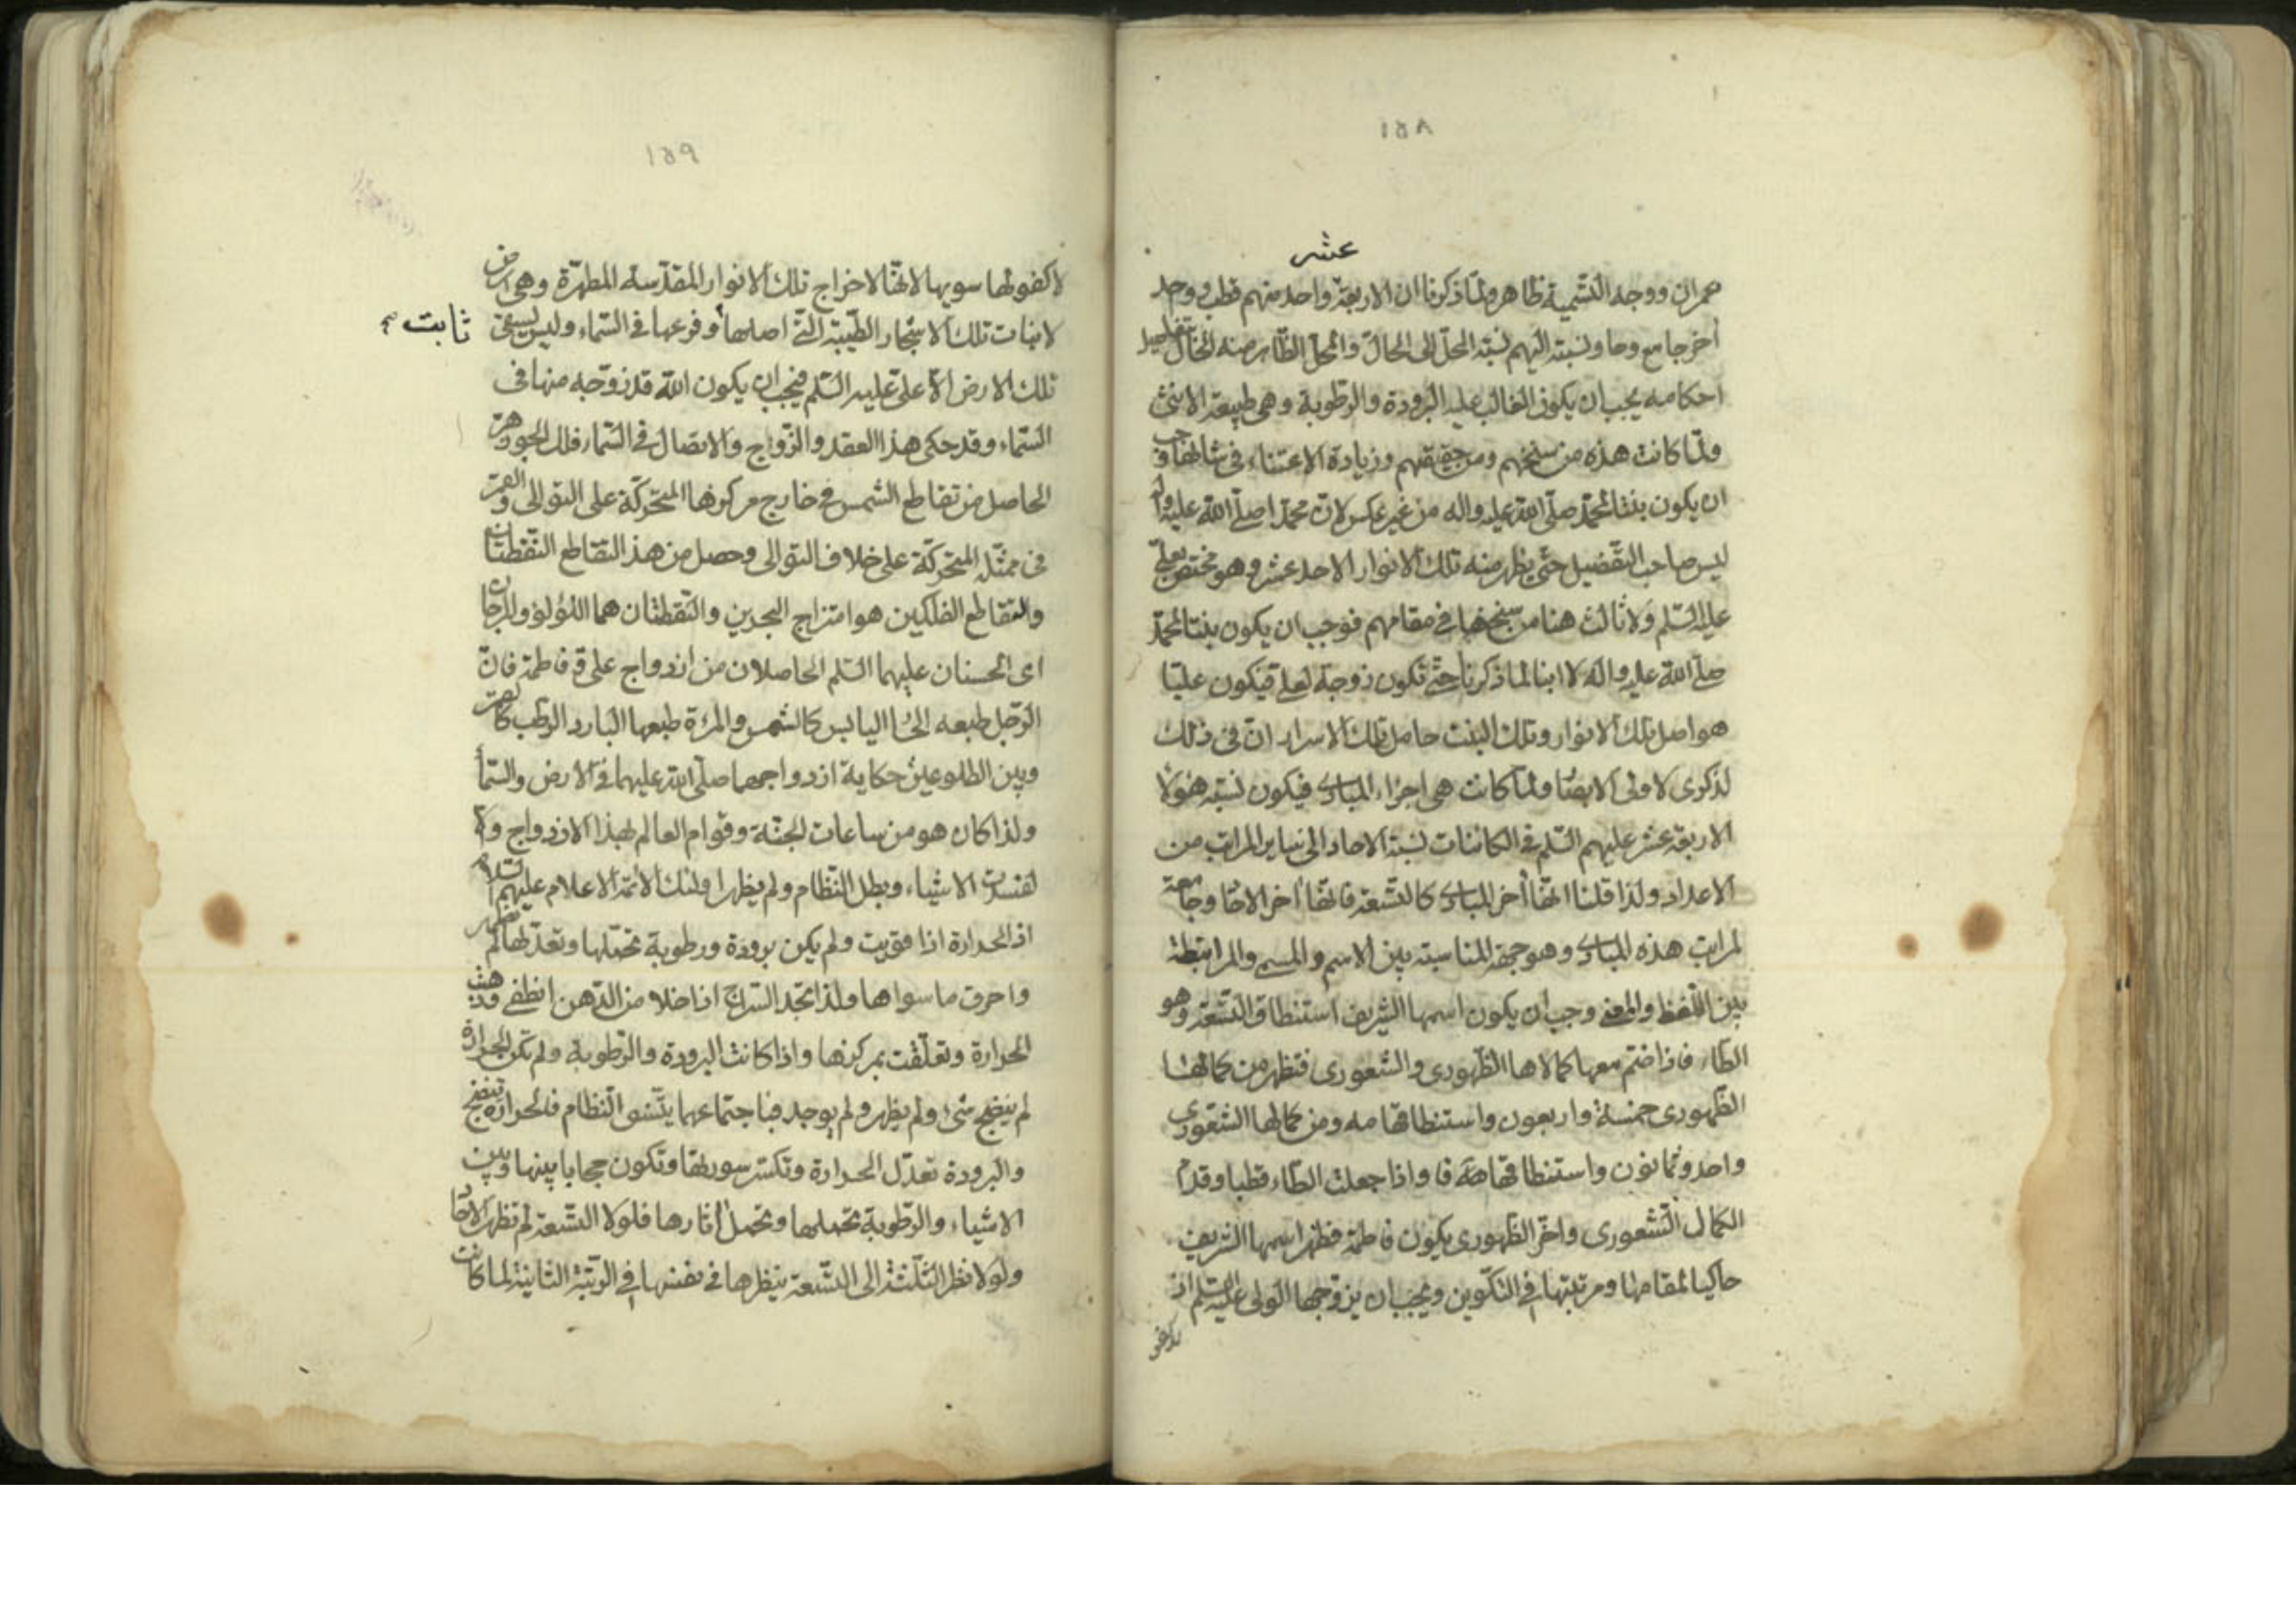 ١٥٨
عشر
عمران ووجه التسمية ظاهر ولما ذكرنا ان الاربعة واحد منهم قطب وواحد
آخر جامع وحاو ونسبته اليهم نسبة المحل الى الحال والمحل الظاهر منه الحال بتفاصيل
احكامه يجب ان يكون الغالب عليه البرودة والرطوبة وهى طبيعة الانثى
ولما كانت هذه من سنخهم ومن حقيقتهم وزيادة الاعتناء فى شانها وجب
ان يكون بنتا لمحمد صلى الله عليه واله من غير عكس لان محمدا صلى الله عليه وآله
ليس صاحب التفضيل حتى يظهر منه تلك الانوار الاحد عشر وهو مختص بعلى
عليه السلم ولا ثالث هنا من سنخها فى مقامهم فوجب ان يكون بنتا لمحمد
صلى الله عليه واله لا ابنا لما ذكرنا حتى تكون زوجة لعلى فيكون عليا
هو اصل تلك الانوار وتلك البنت حامل تلك الاسرار ان فى ذلك
لذكرى لاولى الابصار ولما كانت هى اجزاء المبادى فيكون نسبة هؤلاء
الاربعة عشر عليهم السلم فى الكائنات نسبة الاحاد الى ساير المراتب من
الاعداد ولذا قلنا انها آخر المبادى كالتسعة فانها آخر الاحاد وجامعة
لمراتب هذه المبادى وهو جهة المناسبة بين الاسم والمسمى والمرابطة
بين اللفظ والمعنى وجب ان يكون اسمها الشريف استنطاق التسعة وهو
الطاء فاذا ضم معها كمالاها الظهورى والشعورى فتظهر من كمالها
الظهورى خمسة واربعون واستنطاقها مه ومن كمالها الشعورى
واحد وثمانون واستنطاقها فا واذا جعلت الطاء قطبا وقدم
الكمال الشعورى واخر الظهورى يكون فاطمة فظهر اسمها الشريف
حاكيا لمقامها ومرتبتها فى التكوين ويجب ان يزوجها الولى عليه السلم اذ
لا كفو
١٥٩
لا كفو لها سويها لانها لاخراج تلك الانوار المقدسة المطهرة وهى ارض
لانبات تلك الاشجار الطيبة التى اصلها وفرعها فى السماء وليس يسقى
ثابت صح
تلك الارض الا على عليه السلم فيجب ان يكون الله قد زوجه منها فى
السماء وقد حكى هذا العقد والزواج والاتصال فى السماء فلك الجوزهر
الحاصل من تقاطع الشمس فى خارج مركزها المتحركة على التوالى والقمر
فى ممثله المتحركة على خلاف التوالى وحصل من هذ التقاطع النقطتان
والتقاطع الفلكين هو امتزاج البحرين والنقطتان هما اللؤلؤ والمرجان
اى الحسنان عليهما السلم الحاصلان من ازدواج على و فاطمة فان
الرجل طبعه الحار اليابس كالشمس والمرءة طبعها البارد الرطب كالقمر
وبين الطلوعين حكاية ازدواجهما صلى الله عليهما فى الارض والسماء
ولذا كان هو من ساعات الجنة وقوام العالم لهذا الازدواج والا
لفسدت الاشياء وبطل النظام ولم يظهر اولئك الائمة الاعلام عليهم السلام
اذ الحرارة اذا قويت ولم يكن برودة ورطوبة تحملها وتعدلها لم تظهر
واحرق ما سواها ولذا تجد السراج اذا خلا من الدهن انطفى وذهب
الحرارة وتعلقت بمركزها واذا كانت البرودة والرطوبة ولم تكن الحرارة
لم ينضج شئ ولم يظهر ولم يوجد فباجتماعهما يتسق النظام فالحرارة تنضج
والبرودة تعدل الحرارة وتكسر سورتها وتكون حجابا بينها وبين
الاشياء والرطوبة تحملها وتحمل آثارها فلولا التسعة لم تظهر الاحاد
ولولا نظر الثلثة الى التسعة ينظرها فى نفسها فى الرتبة الثانية لما كانت